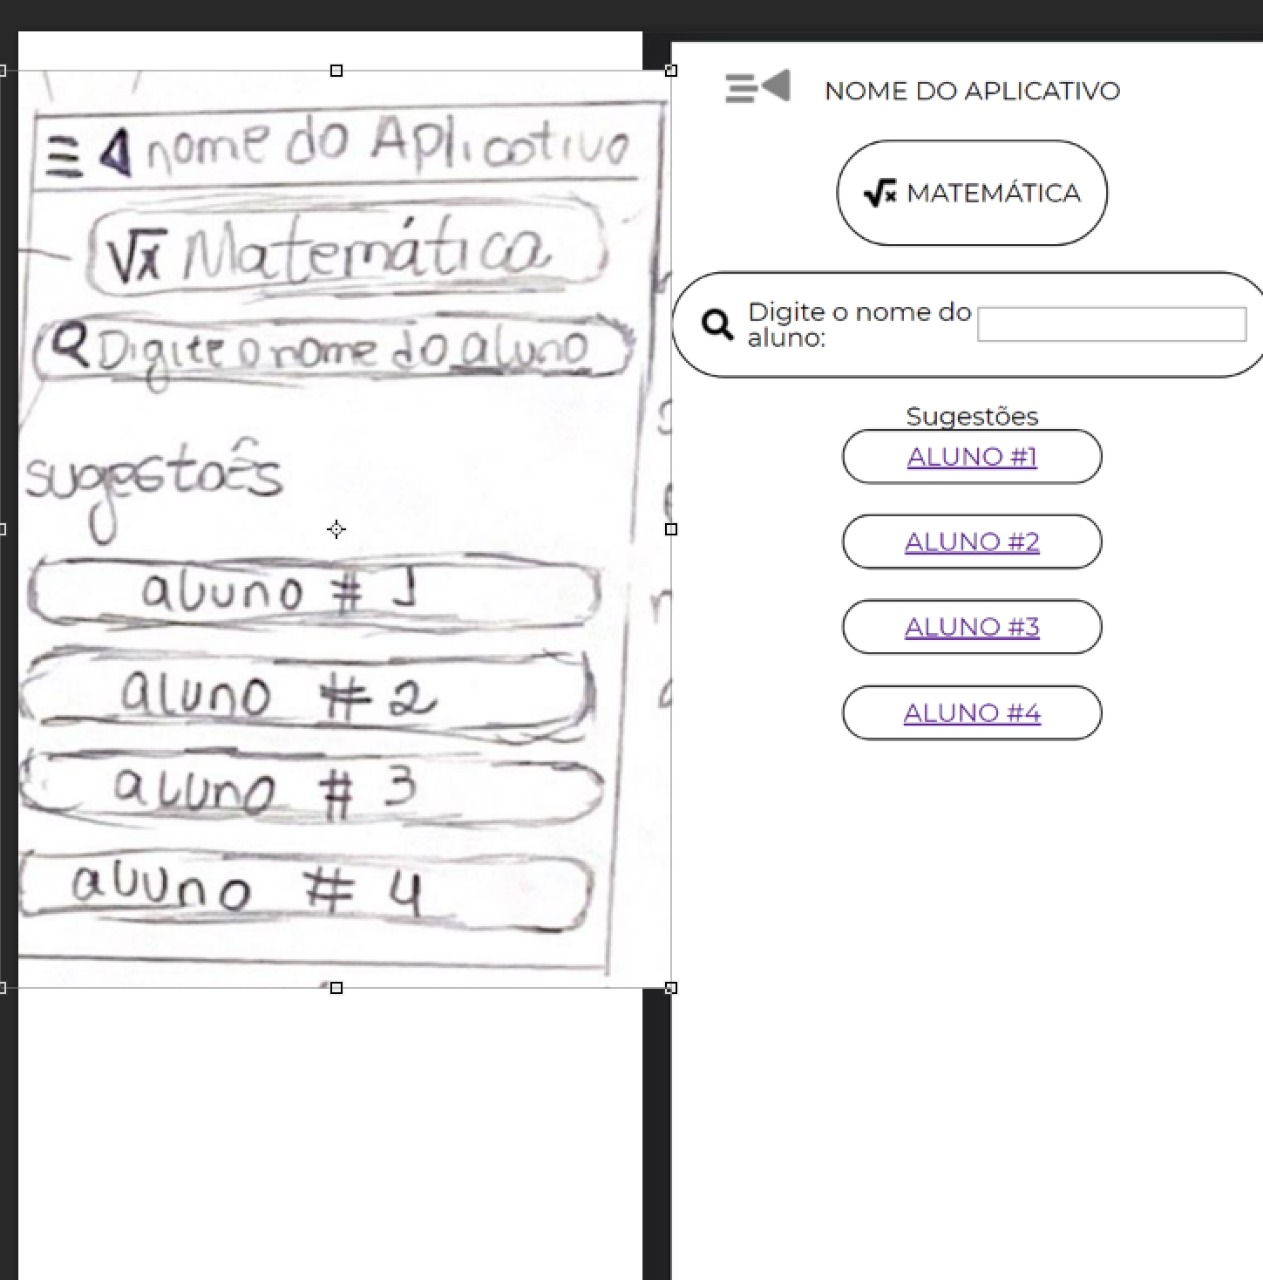 nome do Aplicativo
√x Matemática
Digite o nome do aluno
sugestoẽs
aluno # 1
aluno # 2
aluno # 3
aluno # 4
NOME DO APLICATIVO
√x MATEMÁTICA
Digite o nome do
aluno:
Sugestões
ALUNO #1
ALUNO #2
ALUNO #3
ALUNO #4